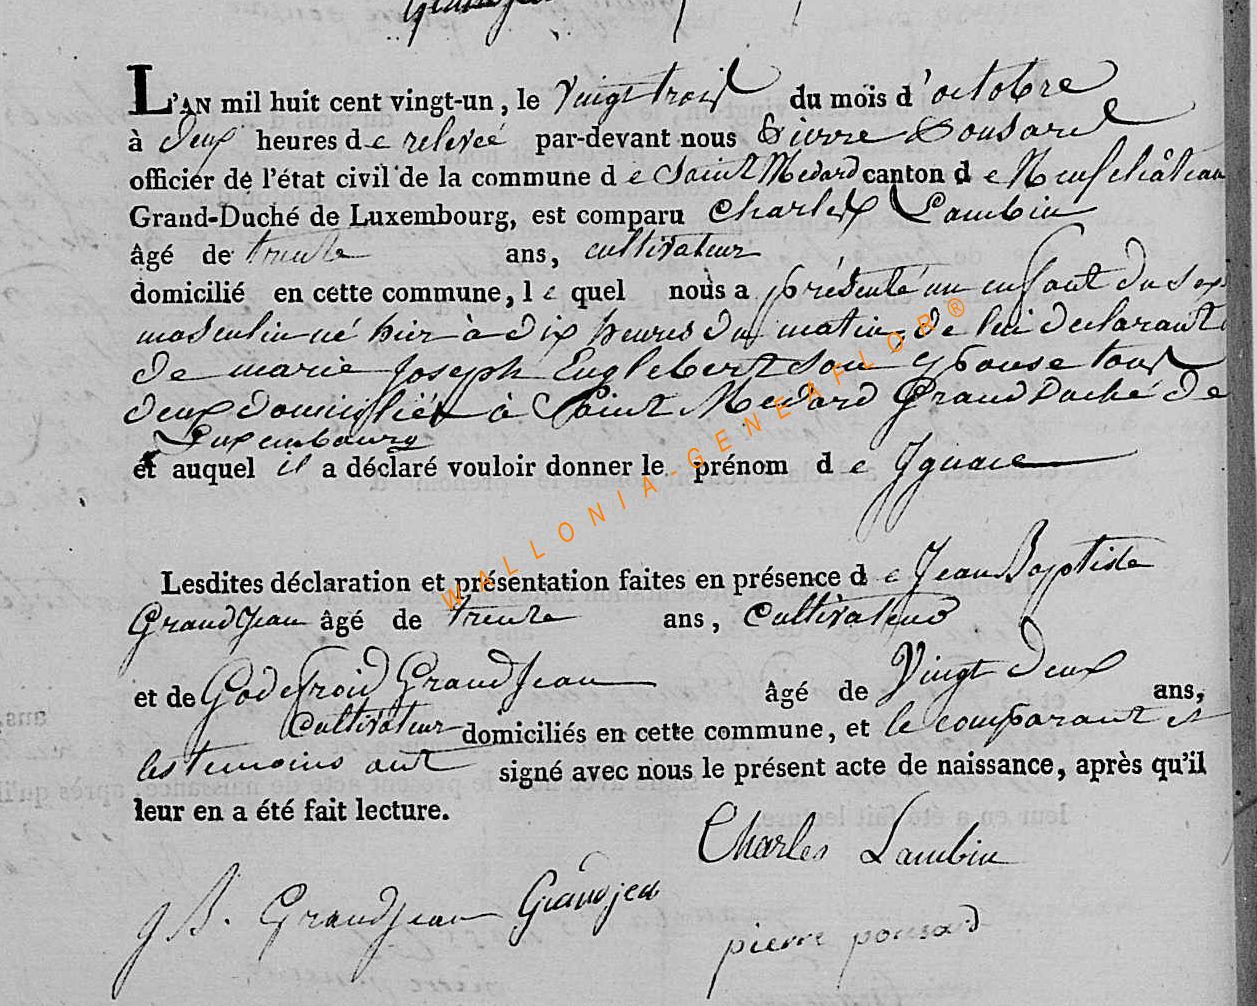 L'AN mil huit cent vingt-un, le vingt trois du mois d'octobre
à deux heures de relevée par-devant nous Pierre Pousard
officier de l'état civil de la commune de Saint Medard canton de Neufchâteau
Grand-Duché de Luxembourg, est comparu Charles Lambin
âgé de trente ans, cultivateur
domicilié en cette commune, lequel nous a présenté un enfant du sexe
masculin né hier à dix heures du matin, de lui declarant
de marie Joseph Englebert son epouse tous
deux domiciliés à Saint Medard Grand Duché de
Luxembourg
et auquel il a déclaré vouloir donner le prénom de Ignace
Lesdites déclaration et présentation faites en présence de Jean Baptiste
GrandJean âgé de trente ans, Cultivateur
et de Godefroid GrandJean âgé de Vingt deux ans,
Cultivateur domiciliés en cette commune, et le comparant et
les temoins ont signé avec nous le présent acte de naissance, après qu'il
leur en a été fait lecture.
Charles Lambin
J B. GrandJean Grandjean
pierre pousard
WALLONIA-GENEAFLOR®